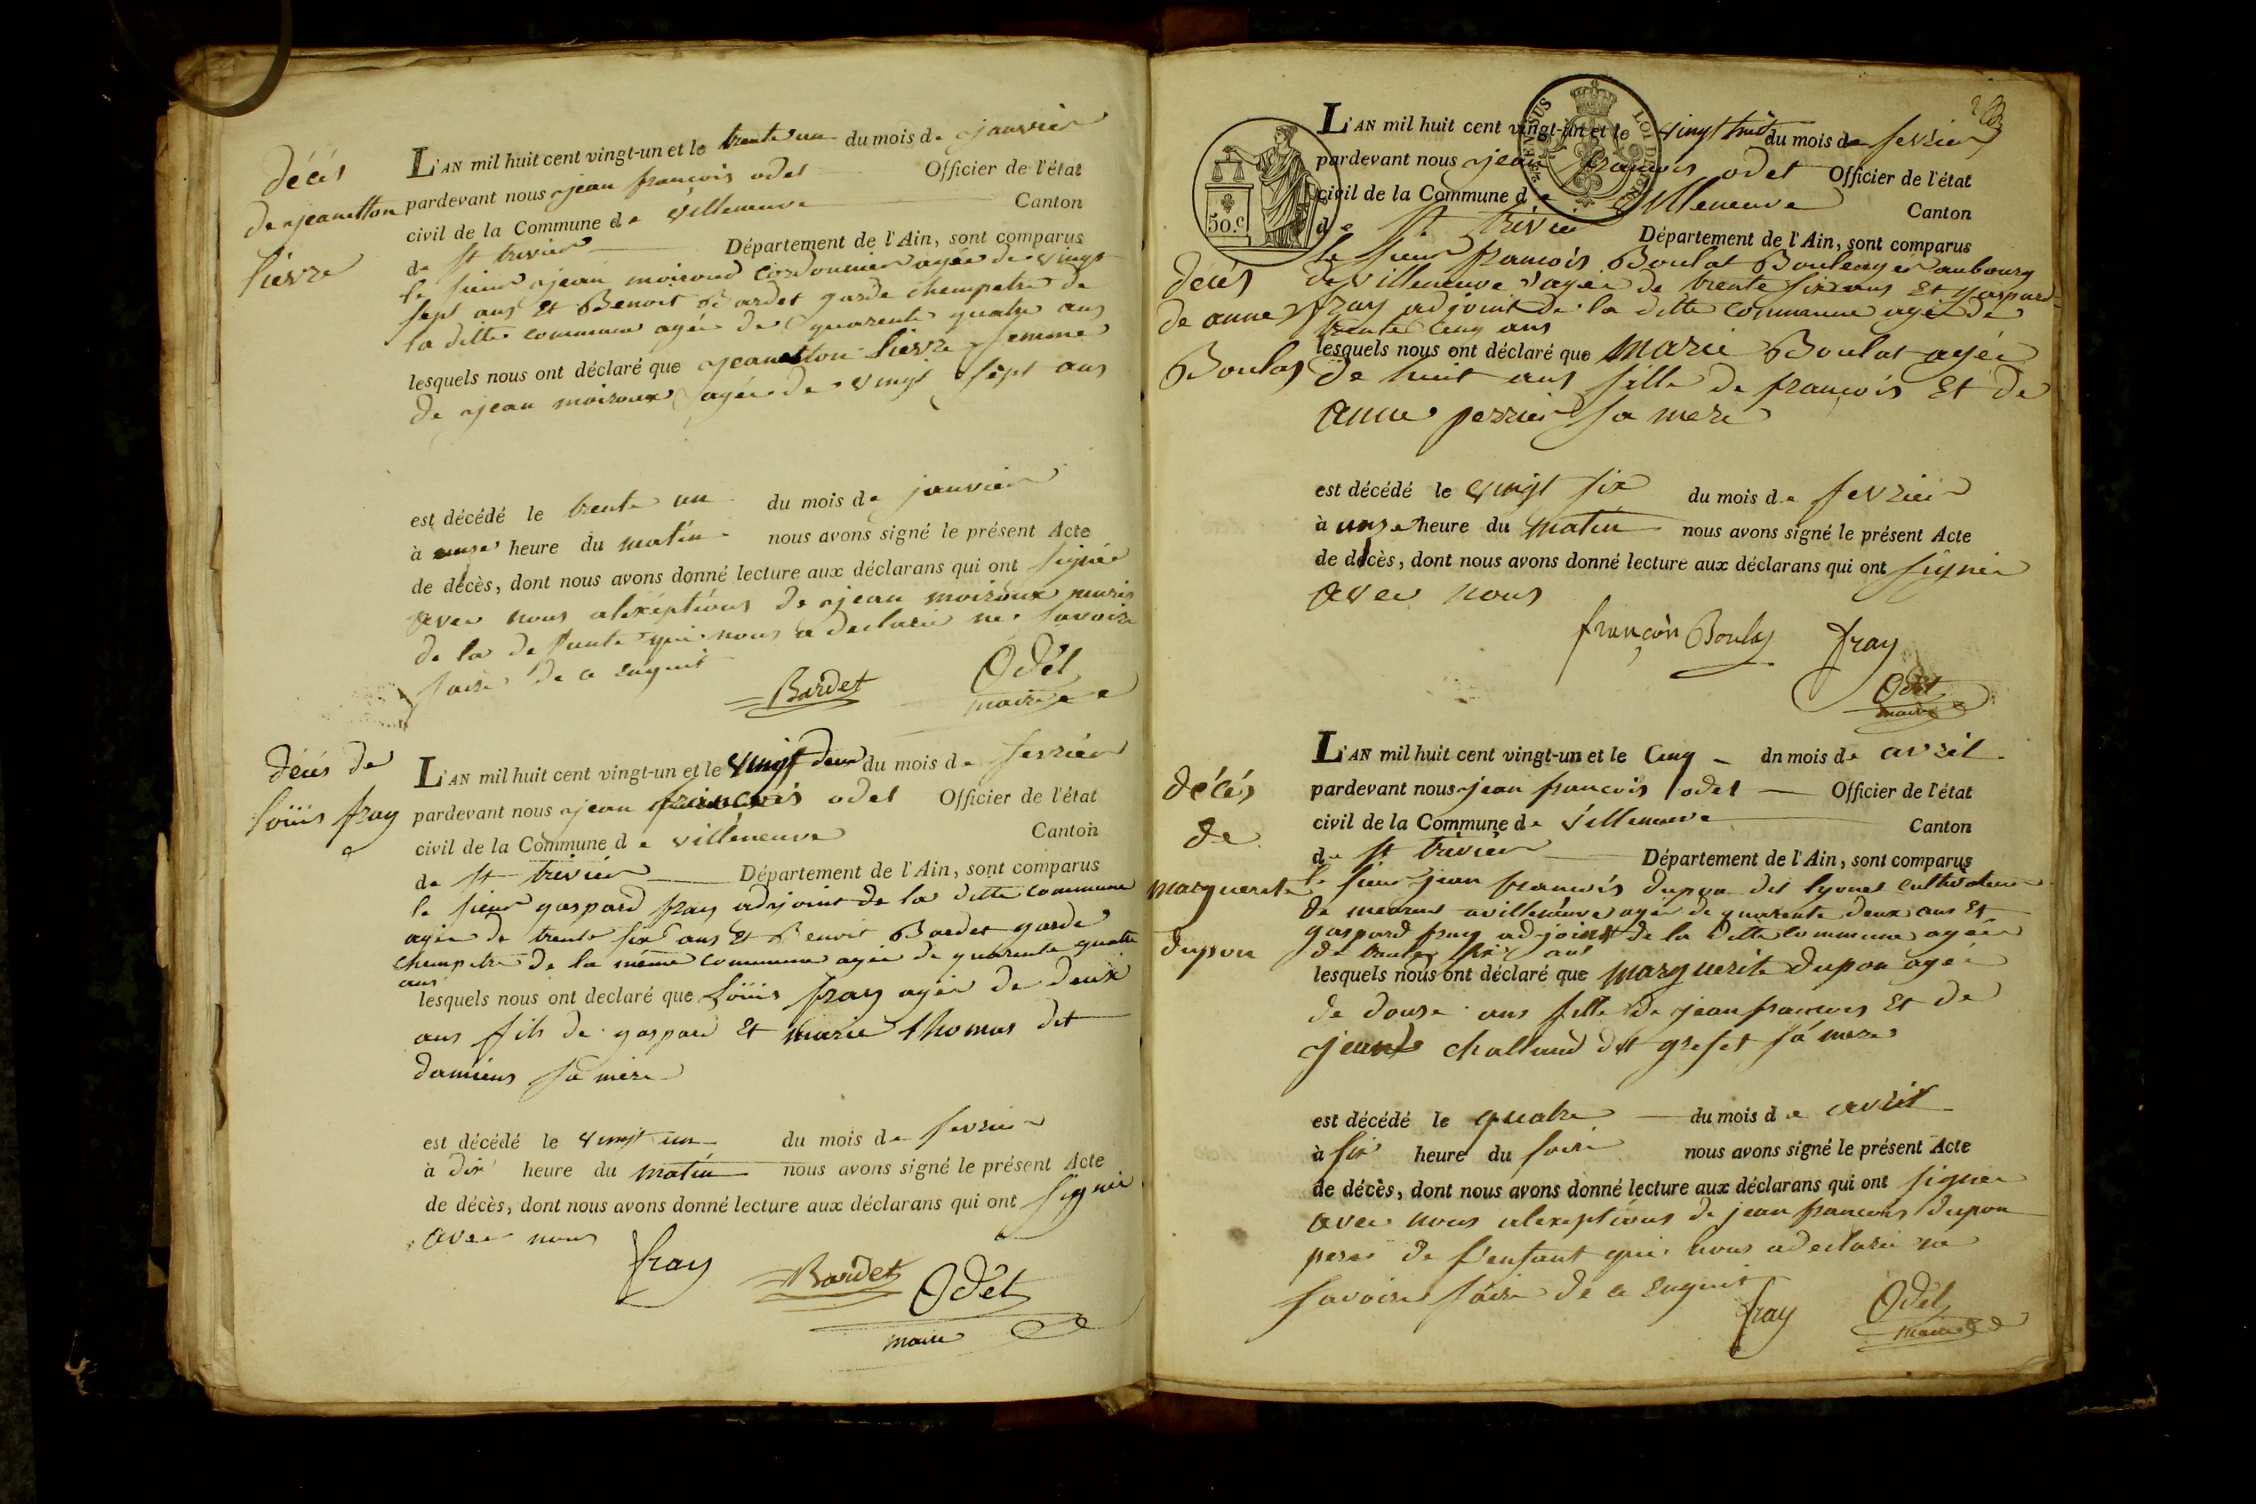 décés
de jeanetton
lievre
L'AN mil huit cent vingt-un et le trente un du mois de janvier
pardevant nous jean francois odet Officier de l'état
civil de la Commune de villeneuve Canton
de st trivier Département de l'Ain, sont comparus
le sieur jean moiroud cordonnier agée de vingt
sept ans Et Benoit Bardet garde chempetre de
la ditte commune agée de quarente quatre ans
lesquels nous ont déclaré que jeanetton lievre femme
de jean moiroux agée de vingt sept ans
est décédé le trente un du mois de janvier
à onze heure du matin nous avons signé le présent Acte
de décès, dont nous avons donné lecture aux déclarans qui ont signée
avec nous aléxéptions de jean moiroux maris
de la defunte qui nous a declaré ne savoire
faire de ce enquit
Bardet Odet
maire
décés de
loüis fray
L'AN mil huit cent vingt-un et le vingt deux du mois de fevrier
pardevant nous jean francois odet Officier de l'état
civil de la Commune de villeneuve Canton
de st trivier Département de l'Ain, sont comparus
le sieur gaspard fray adjoint de la ditte commune
agée de trente six ans Et Benoit Bardet garde
chempetre de la même commune agée de quarente quatre
ans
lesquels nous ont declaré que loüis fray agée de deux
ans fils de gaspard Et marie thomas dit
damiens sa mere
est décédé le vingt un du mois de fevrier
à dix heure du matin nous avons signé le présent Acte
de décès, dont nous avons donné lecture aux déclarans qui ont signée
avec nous
fray Bardet Odet
maire
50.c
L'AN mil huit cent vingt-un et le vingt huit du mois de fevrier
pardevant nous jean francois odet Officier de l'état
civil de la Commune de villeneuve Canton
de st trivier Département de l'Ain, sont comparus
décés
de anne
Boulas
le sieur francois Boulat Boulengér aubourg
de villeneuve agée de trente six ans Et gaspard
fray adjoint de la ditte commune agée de
trente cinq ans
lesquels nous ont déclaré que marie Boulat agée
de huit ans fille de francois Et de
anne perrier sa mere
est décédé le vingt six du mois de fevrier
à onze heure du matin nous avons signé le présent Acte
de décès, dont nous avons donné lecture aux déclarans qui ont signée
avec nous
françois Boulas fray
Odet
maire
décés
de
marguerite
dupon
L'AN mil huit cent vingt-un et le cinq dn mois de avril
pardevant nous jean francois odet Officier de l'état
civil de la Commune de villeneuve Canton
de st trivier Département de l'Ain, sont comparus
le sieur jean francois dupon dit lyonet cultivateur
de meurant a villeneuve agée de quarente deux ans Et
gaspard fray adjoint de la ditte commune agée
de trente six ans
lesquels nous ont déclaré que marguerite dupon agée
de douse ans fille de jean francois Et de
jeane challand dit grefet sa mere
est décédé le quatre du mois de avril
à six heure du soire nous avons signé le présent Acte
de décès, dont nous avons donné lecture aux déclarans qui ont signer
avec nous alexeptions de jean francois dupon
pere de l'enfant qui nous a declaré ne
savoire faire de ce enquit
fray Odet
maire